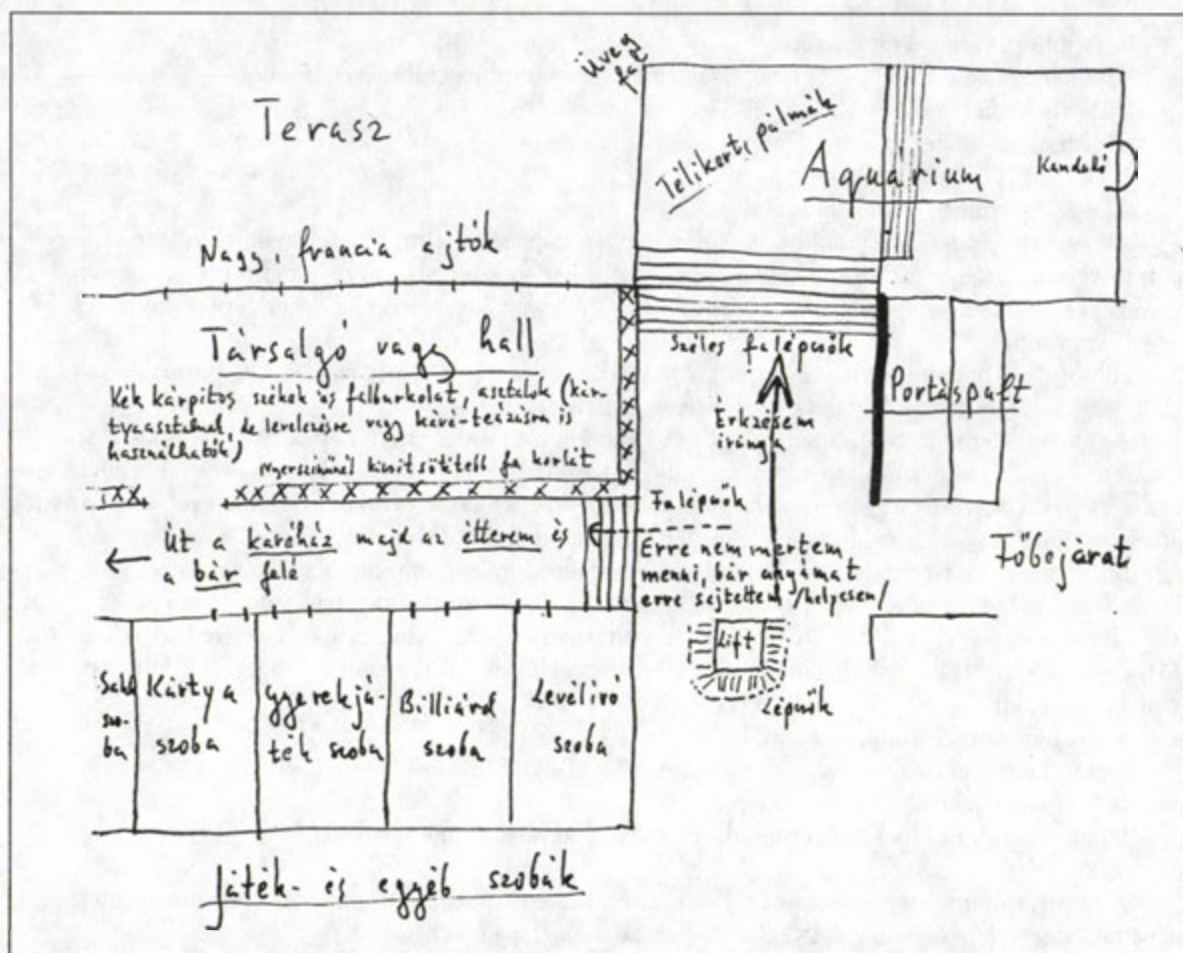 Terasz
Üveg
fal
Télikerti pálmák
Aquárium
Kandalló
Nagy, francia ajtók
Társalgó vagy hall
Kék kárpitos székek és falburkolat, asztalok (kár-
tyaasztalnak, de levelezésre vagy kávé-teázásra is
használhatók)
Nyersszínűnél kissé sötétebb fa korlát
Széles falépcsők
Érkezésem
iránya
Portáspult
Falépcsők
Út a kávéház majd az étterem és
a bár felé
Erre nem mertem
menni, bár anyámat
erre sejtettem /helyesen/
Főbejárat
Lift
Lépcsők
Sakk
szo-
ba
Kártya
szoba
gyerekjá-
ték szoba
Billiárd
szoba
Levélíró
szoba
Játék- és egyéb szobák